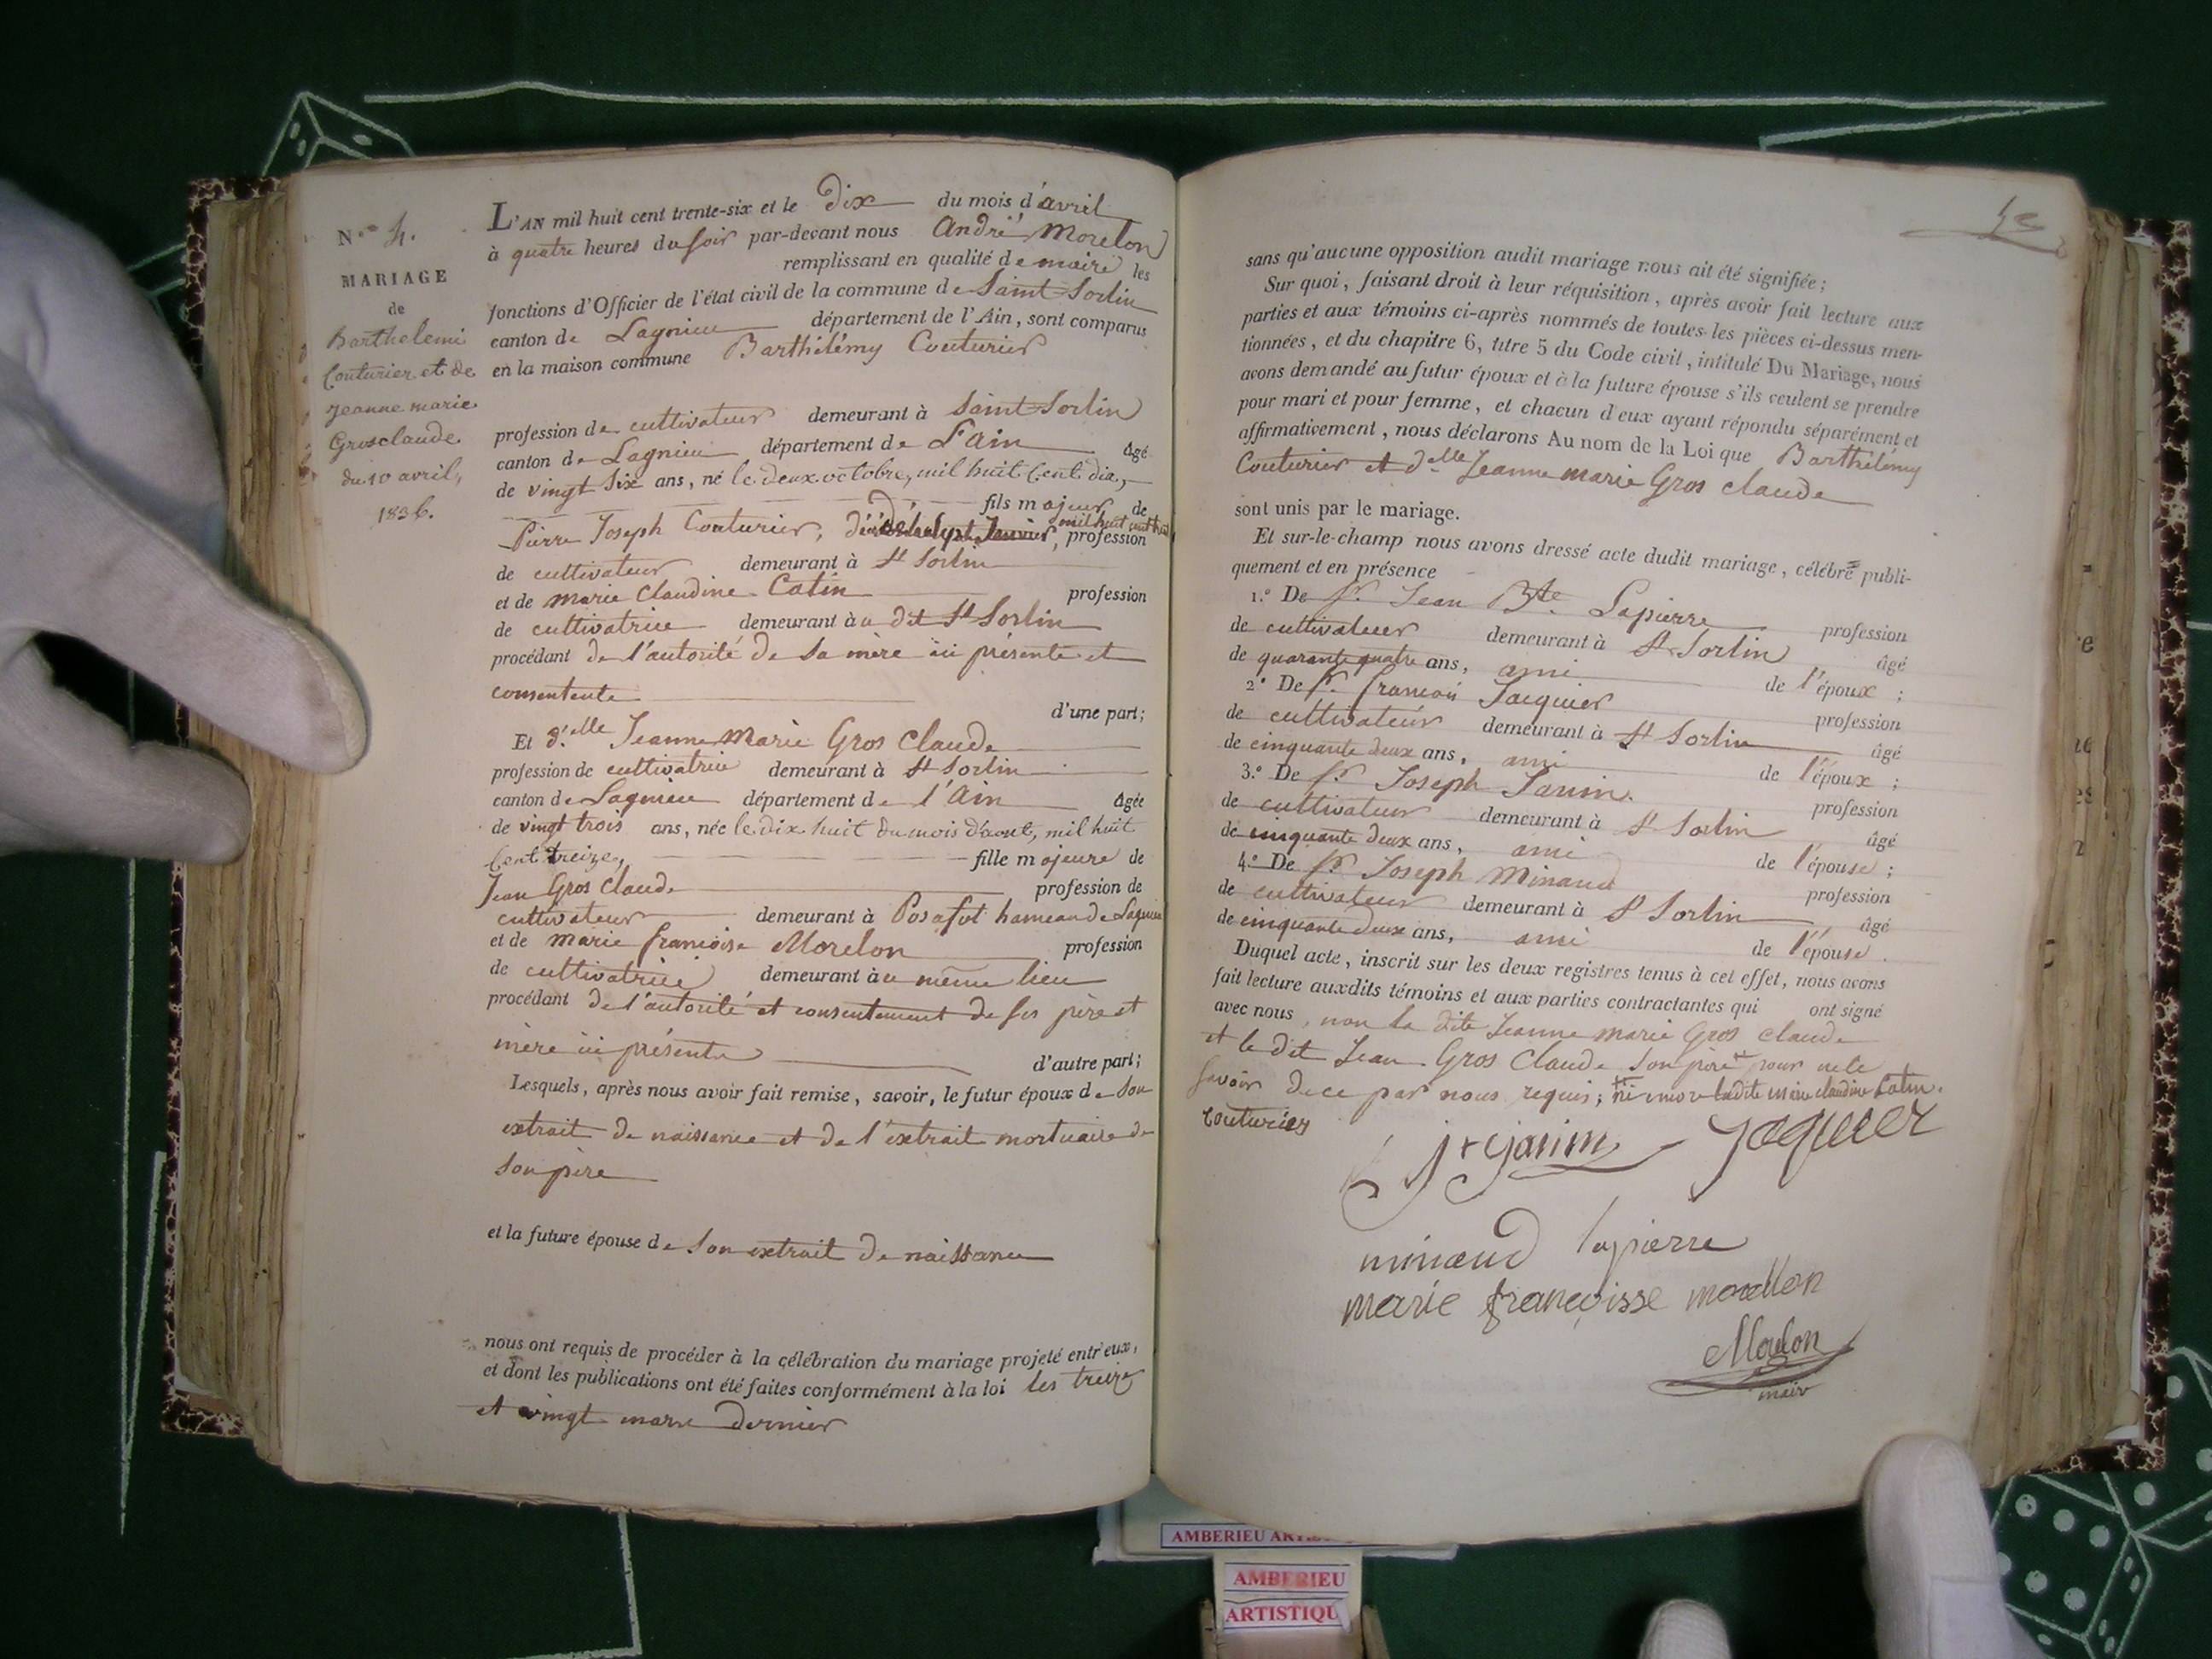 N.º 4.
MARIAGE
de
Barthelemi
Couturier et de
Jeanne marie
Grosclaude.
du 10 avril,
1836.
L'AN mil huit cent trente-six et le Dix du mois d'avril
à quatre heures du soir par-devant nous André Morelon
remplissant en qualité de maire les
fonctions d'Officier de l'état civil de la commune de Saint-Sorlin
canton de Lagnieu département de l'Ain, sont comparus
en la maison commune Barthélémy Couturier
profession de cultivateur demeurant à Saint-Sorlin
canton de Lagnieu département de L'Ain âgé
de vingt six ans, né le deux octobre, mil huit Cent dix,
fils majeur de
Pierre Joseph Couturier, décédé le sept Janvier mil huit cent, profession
de cultivateur demeurant à St Sorlin
et de marie Claudine Catin profession
de cultivatrice demeurant au dit St Sorlin
procédant de l'autorité de sa mère ici présente et
consentente
d'une part;
Et d.elle Jeanne Marie Gros Claude
profession de cultivatrice demeurant à St Sorlin
canton de Lagnieu département de l'Ain âgée
de vingt trois ans, née le dix huit du mois d'aout, mil huit
Cent treize, fille majeure de
Jean Gros Claude profession de
cultivateur demeurant à Posafol hameau de Lagnieu
et de marie françoise Morelon profession
de cultivatrice demeurant au même lieu
procédant de l'autorité et consentement de ses père et
mère ici présents
d'autre part;
Lesquels, après nous avoir fait remise, savoir, le futur époux de son
extrait de naissance et de l'extrait mortuaire de
son père
et la future épouse de son extrait de naissance
nous ont requis de procéder à la célébration du mariage projeté entr'eux,
et dont les publications ont été faites conformément à la loi les treize
et vingt mars dernier
sans qu'aucune opposition audit mariage nous ait été signifiée;
Sur quoi, faisant droit à leur réquisition, après avoir fait lecture aux
parties et aux témoins ci-après nommés de toutes les pièces ci-dessus men-
tionnées, et du chapitre 6, titre 5 du Code civil, intitulé Du Mariage, nous
avons demandé au futur époux et à la future épouse s'ils veulent se prendre
pour mari et pour femme, et chacun d'eux ayant répondu séparément et
affirmativement, nous déclarons Au nom de la Loi que Barthélémy
Couturier et d.elle Jeanne marie Gros claude
sont unis par le mariage.
Et sur-le-champ nous avons dressé acte dudit mariage, célébré publi-
quement et en présence
1.º De Sr. Jean Bte. Lapierre profession
de cultivateur demeurant à St Sorlin âgé
de quarante quatre ans, ami de l'époux ;
2.º De Sr. françois Jacquier profession
de cultivateur demeurant à St Sorlin âgé
de cinquante deux ans, ami de l'époux ;
3.º De Sr. Joseph Janin. profession
de cultivateur demeurant à St Sorlin âgé
de cinquante deux ans, ami de l'épouse ;
4.º De Sr. Joseph Minaud profession
de cultivateur demeurant à St Sorlin âgé
de cinquante deux ans, ami de l'épouse.
Duquel acte, inscrit sur les deux registres tenus à cet effet, nous avons
fait lecture auxdits témoins et aux parties contractantes qui ont signé
avec nous, non la dite Jeanne marie Gros Claude
et le dit Jean Gros Claude son père pour ne le
savoir de ce par nous requis; ladite marie claudine Catin.
Couturier
jh janin jaquier
minaud lapierre
marie françoisse morellon
Morelon
maire
AMBERIEU
AMBERIEU
ARTISTIQU